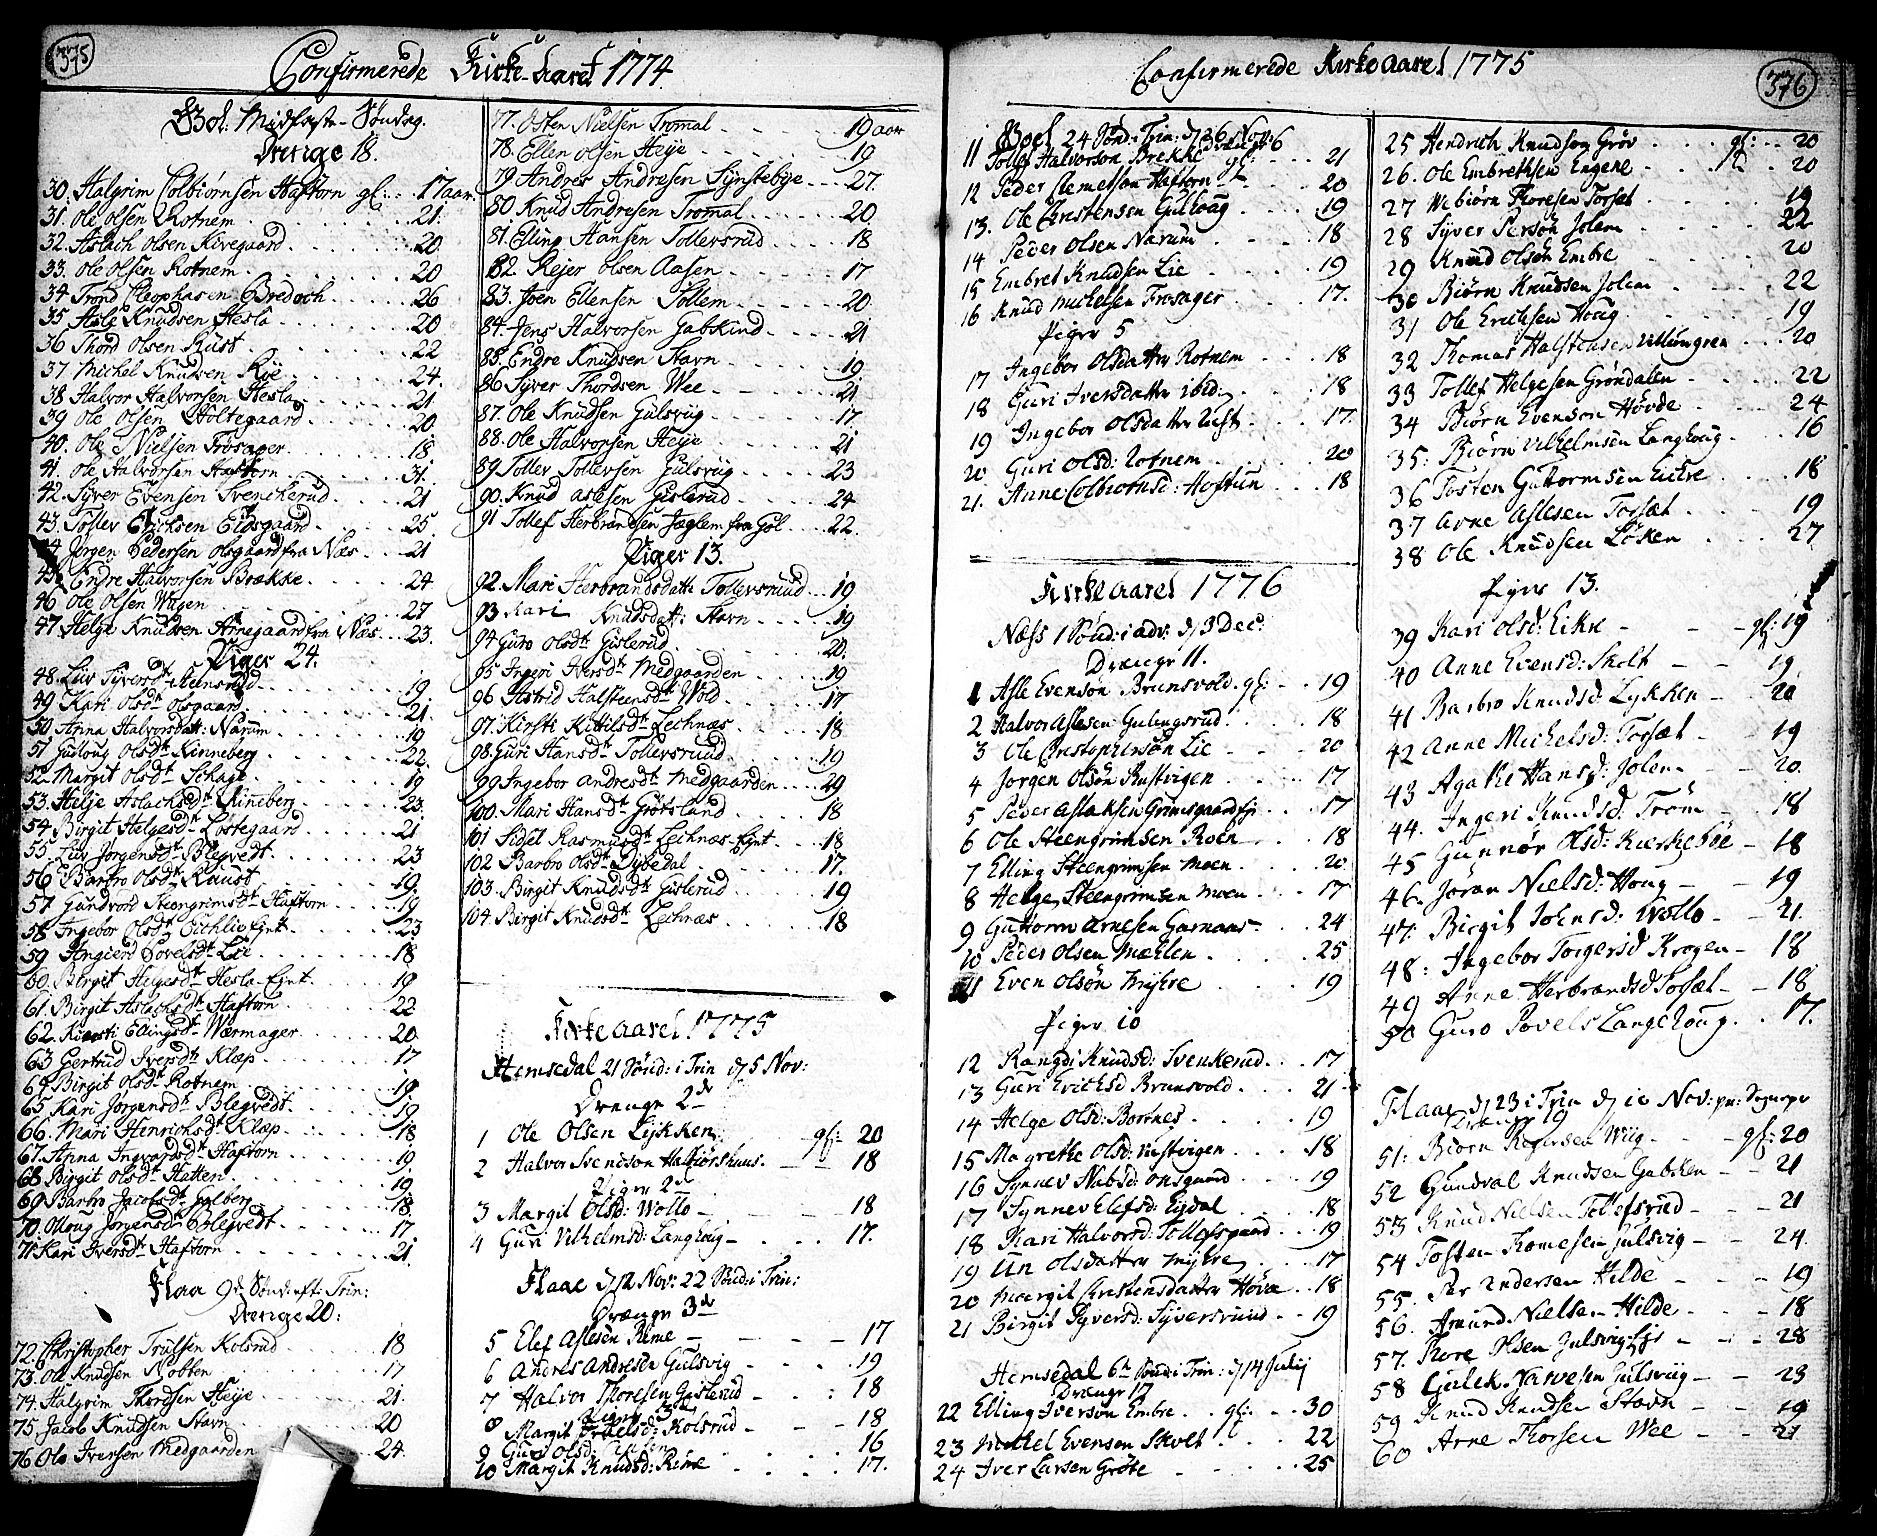 375
Confirmerede Kirke-Aaret 1774.
Gol: Midfaste-Søndag.
Drenge 18.
30. Halgrim Colbiørnsen Haftorn gl: 17 aar
31. Ole Olsen Rotnem 21.
32. Aslach Olsen Kiregaard 20
33. Ole Olsen Rotnem 20
34 Trond Cleophasen Bredoch 26
35 Asle Knudsen Hesla 20
36 Thord Olsen Rust 22
37 Michel Knudsen Roe 24.
38 Halvor Halvorsen Hesla 21
39 Ole Olsen Holtegaard 20
40. Ole Nielsen Frøsager 18
41. Ole Halvorsen Haftorn 31.
42. Syver Evensen Svenckerud 21
43. Tollev Ericksen Eidsgaard 25
44 Jørgen Pedersen Olsgaard fra Næs 21
45 Endre Halvorsen Brække 24
46 Ole Olsen Wigen 27
47. Helge Knudsen Arnegaard fra Næs 23.
Piger 24.
48. Liv Syversdt Steensrud 19
49 Kari Olsdt Olsgaard 21
50 Anna Halvorsdatt: Narum 19
51 Gulloug Olsdt Ninneberg 22
52. Margit Olsdt Schage 19
53. Helje Aslachsdt Rinneberg 23
54. Birgit Helgesdt Løstegaard 21
55. Liv Jørgensdt Blegvedt 23
56 Barbro Olsdt Raust 19
57 Gundvor Steengrimsdt Haftorn 19
58 Ingebor Olsdt Eichlie Ejnt. 23
59 Angierd Povelsdt Lie 18
60. Birgit Helgesdt Hesla-Ejnt. 19
61. Birgit Aslachsdt Haftorn 22
62. Kiersti Ellingsdt Wærmager 20
63 Gertrud Iversdt Klæp 17
64 Birgit Olsdt Rotnem 19
65 Kari Jørgensdt Blegvedt 19
66. Mari Henrichsdt Klæp 18
67. Anna Ingvarsdt Haftorn 19
68 Birgit Olsdt Hatten 19
69 Barbro Jacobsdt Golberg 18
70. Olloug Jørgensdt Blegvedt 17
71 Kari Iversdt Haftorn 21
Flaa 9de Sønd: eft: Trin:
Drenge 20:
72. Christopher Trulsen Kolsrud 18
73. Ole Knudsen Nobben 17
74. Halgrim Thordsen Heije 21.
75 Jacob Knudsen Stavn 20
76 Ole Iversen Medgaarden 24.
77. Osten Nielsen Tromal 19 aar
78. Ellen Olsen Heije 19
79 Andres Andresen Synstebye 27.
80 Knud Andresen Tromal 20
81. Elling Hansen Tollersrud 18
82. Rejer Olsen Aasen 17
83. Joen Ellensen Sollem 20
84. Jens Halvorsen Gabkind 21
85. Endre Knudsen Stavn 19
86. Syver Thordsen Wee 21
87. Ole Knudsen Gulsvig 17.
88. Ole Halvorsen Heije 21
89. Tollev Tollevsen Gulsvig 23
90. Knud Aslesen Gislerud 24
91 Tollef Herbrandsen Jæglem fra Gol 22.
Piger 13.
92. Mari Herbrandsdatt: Tollersruud 19
93 Kari Knudsdatt: Stavn 19
94 Guro Olsdt Gislerud 20.
95 Ingeri Iversdt Medgaarden 19
96 Astrid Halsteensdt Wold 17
97. Kirsti Kittilsdt Lechnæs 18
98. Guri Hansdt Tollersruud 19
99 Ingebor Andresdt Medgaarden 29
100. Mari Hansdt Grøtsland 18
101 Sidsel Rasmusdt Lechnæs-Ejnt 18
102 Barbro Olsdt Dybedal 17.
103. Birgit Knudsdt Gislerud 19
104. Birgit Knudsdt Lechnæs 18
Kirke aaret 1775
Hemsedal 21 Sønd: i Trin d/ 5 Nov:
Drenge 2de
1 Ole Olsen Lykken gl: 20
2 Halvor Svendson Halbiørshuus 18
Piger 2de
3 Margit Olsd: Wollo 18
4 Guri Vilhelmsd: Langhoug 17.
Flaae d/12 Nov: 22 Sønd: i Trin:
Drænge 3de
5 Elef Aslesen Reme 17
6 Andres Andresen Gulsvig 19
7 Halvor Thoresen Gislerud 18
Piger 3de
8 Margit Truelsd: Kolsrud 18
9 Guri Olsd: 16
10 Margit Knudsd: Reme 17.
376
Confirmerede Kirkeaaret 1775
Goel 24 Sønd: Trin: d/26 Nov:
Drænge 6
11 Tollef Halvorson Brekke gl: 21
12 Peder Clemetson Haftorn 20
13. Ole Christensen Gulhoug 19
14 Peder Olsen Narum 18
15 Embret Knudsen Lie 19
16 Knud Michelsen Frøsager 17.
Piger 5
17 Ingebor Olsdatter Rotnem 18
18 Guri Iversdatter ibid: 18
19 Ingebor Olsdatter Tuft 17.
20 Guri Olsd: Rotnem 20
21. Anne Colbiørnsd: Hoftun 18
Kirkeaaret 1776
Næss 1 Sønd: i adv: d/3 Dec:
Drænge 11.
1 Asle Evensøn Brunsvold gl: 19
2 Halvor Aslesen Gulingsrud 18
3 Ole Christophersøn Lie 20
4 Jørgen Olsøn Rustvigen 17
5 Peder Aslaksen Grimsgaardeje 17
6 Ole Steengrimsen Roen 18
7 Elling Steengrimsen Moen 20
8 Helge Steengrimsen Moen 17
9 Guttorm Arnesen Garnaas 24
10 Peder Olsen Mæhlen 25
11 Even Olsøn Myhre 19
Piger 10
12 Rangdi Knudsd: Svenkerud 17
13 Guri Erichsd Brunsvold 21
14 Helge Olsd: Bortnes 19
15 Magrethe Olsd: Rustvigen 18
16 Synnev Nubsd: Onsgaard 19
17 Synnev Elefsd: Eijdal 18
18 Kari Halvorsd: Tollefsgaard 19
19 Un Olsdatter Myhre 17
20 Margit Christensdatter Høva 18
21 Birgit Syversd: Syversruud 19
Hemsedal 6te Sønd: i Trin: d/14 Julij
Drænge 17
22 Elling Iverson Embre gl: 30
23 Michel Evensen Skolt 22
24 Iver Larsen Grøte 25
25 Hendrich Knudsøn Grøv gl: 20
26. Ole Embrethsen Engene 20
27 Webiørn Thoresen Torset 19
28 Syver Persøn Jolem 22
29 Knud Olsøn Embre 20
30 Biørn Knudsen Jolem 22
31 Ole Erichsen Houg 19
32 Thomas Halstensen Ullungren 20
33 Tollef Helgesen Grøndalen 22
34 Biørn Evenson Høvde 24
35: Biørn Vilhelmsen Langhoug 16
36 Tosten Guttormsen Eikre 18
37 Arne Aslesen Torset 19
38 Ole Knudsen Løken 27
Piger 13.
39 Kari Olsd: Eikre gl: 19
40 Anne Evensd: Skolt 19
41 Barbro Knudsd Lykken 20
42 Anne Michelsd: Torset 19
43 Agathe Hansd: Jolem 20.
44. Ingeri Knudsd: Trøm 18
45 Gunnor Olsd: Kierkebøe 18
46. Jøran Nielsd: Houg 19
47: Birgit Johnsd: Wollo 21.
48: Ingebor Torgersd Krogen 18
49 Anne Herbrandsd Torset 18
50 Guro Povels Langehoug 17.
Flaae d/ 23 i Trin d/ 10 Nov: 
Drænge 19
51: Biørn Rejersen Wiig gl: 20
52 Gundval Knudsen Gabken 21
53 Knud Nielsen Tollefsrud 21
54 Tosten Tomesen Gulsvig 24.
55. Per Andersen Hilde 19
56. Amund Nielsen Hilde 18
57. Thore Olsen Julsvig: Eje 28
58 Gulek Narvesen Gulsviig 23
59 Knud Knudsen Stavn 19
60 Arne Thorsen Wee 21